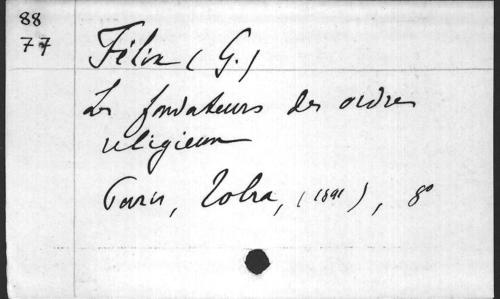 88
77
Félix (G.)
Les fondateurs des ordres
religieux
Paris, Tolra, (1891), 8°